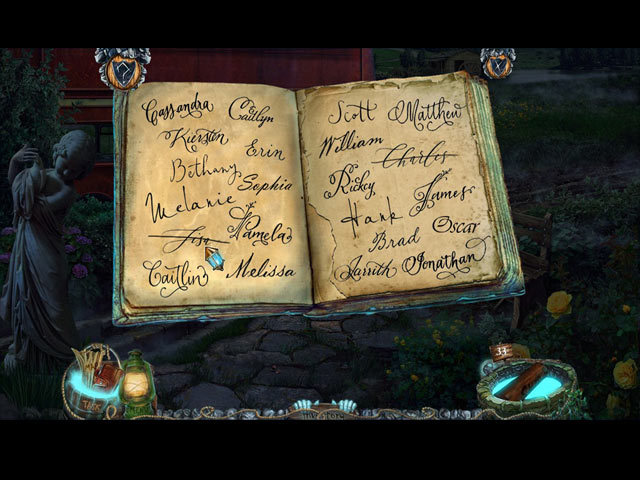 Cassandra Caitlyn
Kiersten Erin
Bethany
Melanie Sophia
Lisa Pamela
Caitlin Melissa
Scott Matthew
William Charles
Ricky James
Hank
Brad Oscar
Jarrith Jonathan